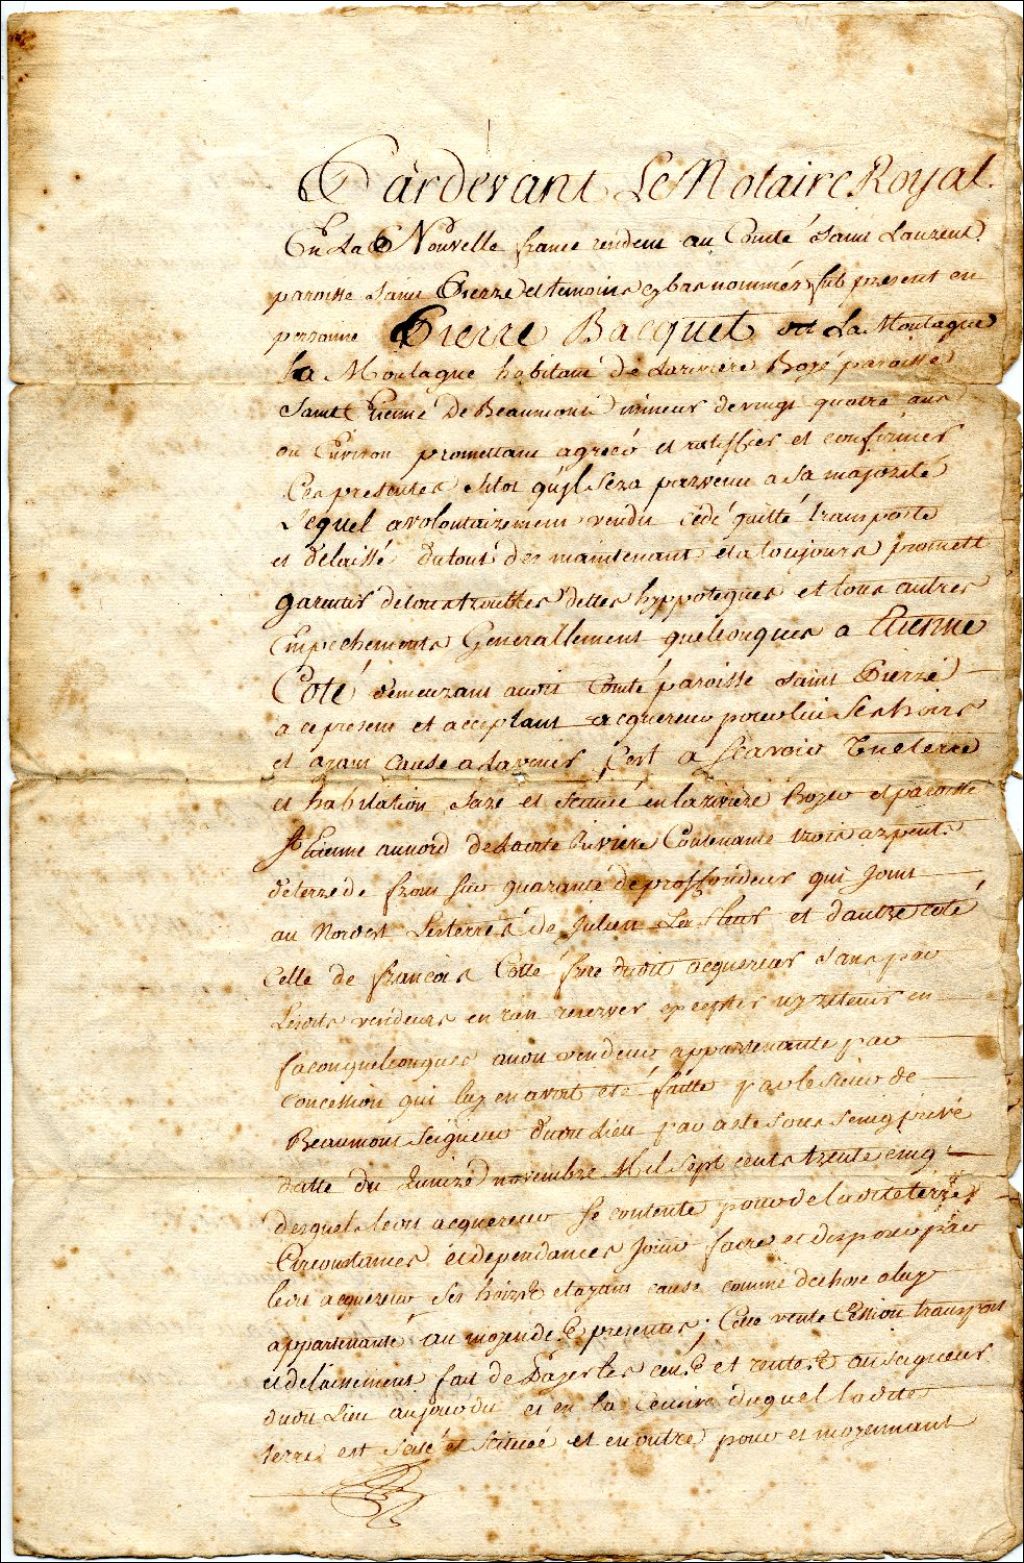 Pardevant Le Notaire Royal
En La Nouvelle france rendent au Comté Saint Laurent
paroisse Saint Pierre et temoins cy bas nommés fut present en
personne Pierre Bacquet dit La Montague
La Montague habitant de La riviere Boyé paroisse
Saint Etienne De Beaumont mineur de vingt quatre ans
ou Environ promettant agreeé et ratiffier et confirmer
Ces presentes sitot quÿl Sera parvenu a Sa majorité
Lequel a volontairement vendu cédé quitté transporte
et delaissé du tout des maintenant et a toujours promett
garentir de tous troubles dettes hyppoteques et tous autres
Empechements Generallement quelconques a Etienne
Coté demeurant audit Comté paroisse Saint Pierre
a ce present et acceptant acquereur pour lui Ses hoirs
et ayant Cause a Lavenir C'est a Scavoir Une terre
et habitation Size et Scitueé en la riviere Boyer et paroisse
St Etienne au nord de Ladite Riviere Contenante trois arpents
de terre de front sur quarante de proffondeur qui Joint
au Nordest Les terres de Julien La fleur et d'autre coté
Celle de francois Cotté frere dudit acquereur Sans par
Lesdits vendeurs en rien reserver excepter ny retenir en
facon quelconques audit vendeur appartenante par
Concession qui luy en avoit eté faitte par le Sieur de
Beaumont Seigneur dudit Lieu par acte sous Seing privé
datte du quinze novembre Mil Sept cents trente cinq
desquels ledit acquereur Se contente pour de Ladite terre
Circonstances et dependances Jouir faire et disposer par
ledit acquereur Ses hoirs et ayant cause comme de chose a luy
appartenante au moyen des presentes; Cette vente Cession transport
et delaissement fait de Payer les cens et rentes au Seigneur
dudit Lieu aujourdui et en la Censive duquel la dite
terre est Scisé et Scitueé et en outre pour et moyennant